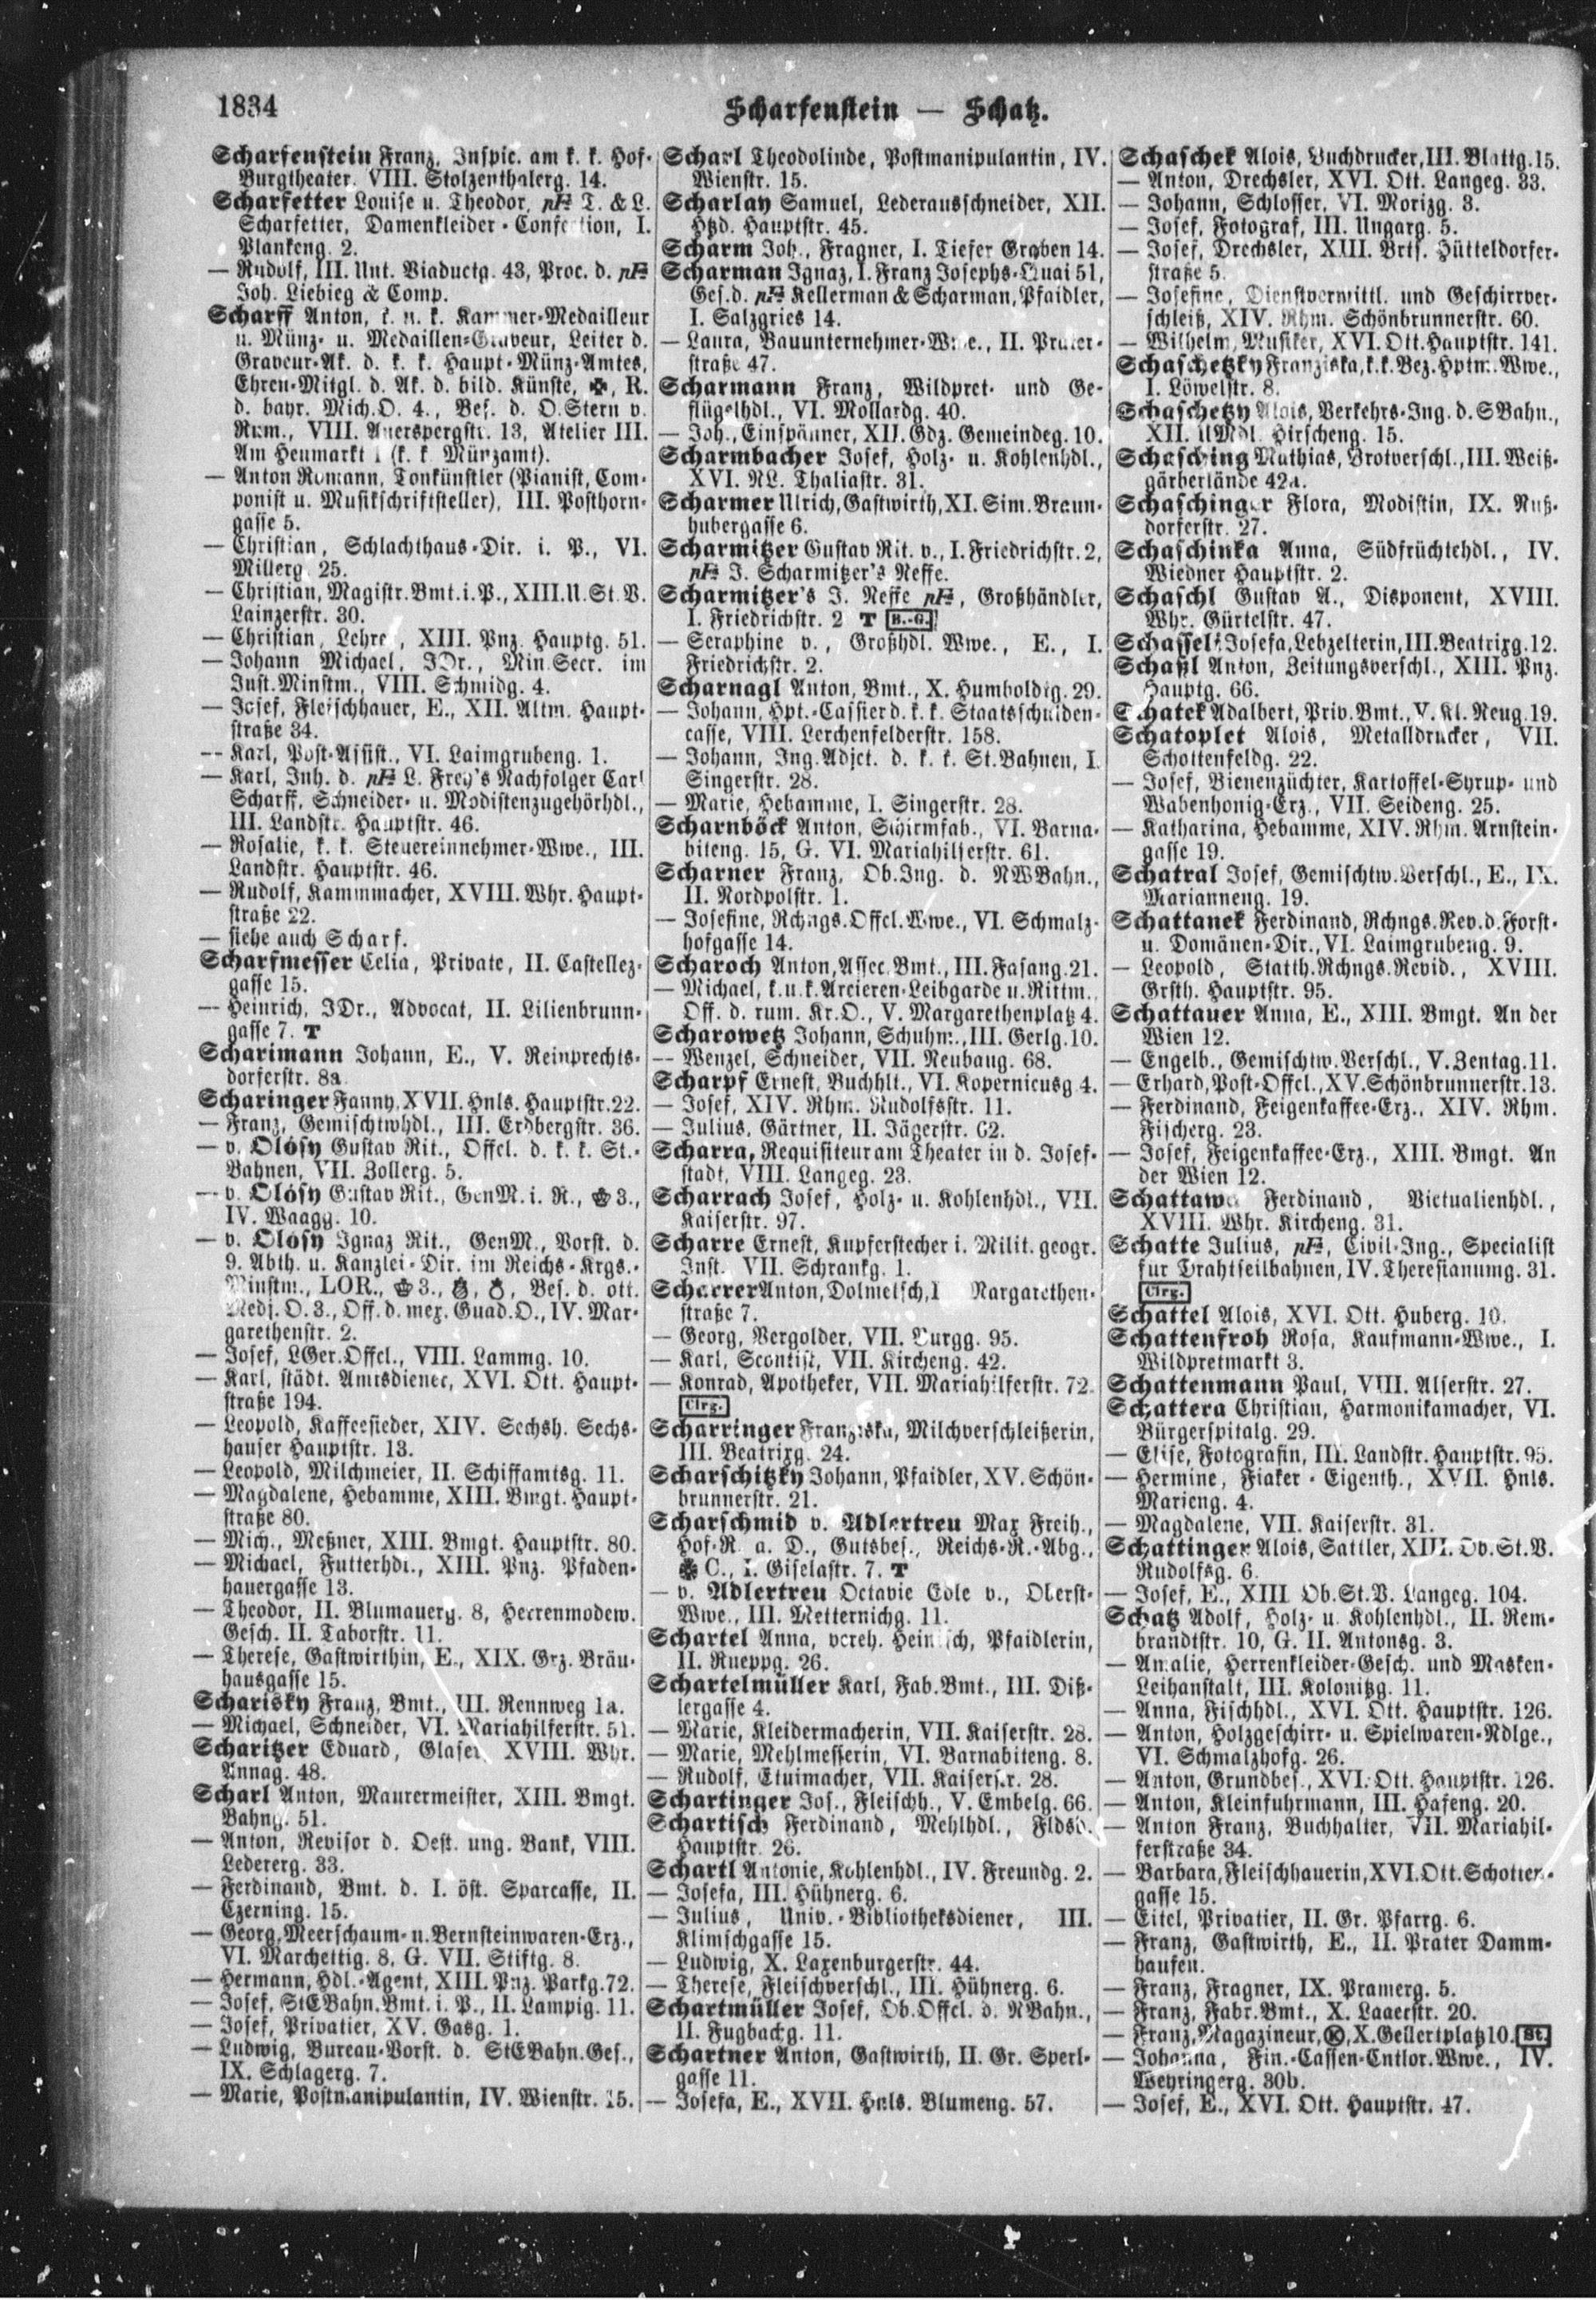 1834
Scharfenstein — Schatz.
Scharfenstein Franz, Inspic. am k. k. Hof-
Burgtheater. VIII. Stolzenthalerg. 14.
Scharfetter Louise u. Theodor, T. & L.
Scharfetter, Damenkleider-Confection, I.
Plankeng. 2.
— Rudolf, III. Unt. Viaductg. 43, Proc. d.
Joh. Liebieg & Comp.
Scharff Anton, k. u. k. Kammer-Medailleur
u. Münz- u. Medaillen-Graveur, Leiter d.
Graveur-Ak. d. k. k. Haupt-Münz-Amtes,
Ehren-Mitgl. d. Ak. d. bild. Künste, ✠, R.
d. bayr. Mich.O. 4., Bes. d. O.Stern v.
Rum., VIII. Auerspergstr. 13, Atelier III.
Am Heumarkt 1 (k. k. Münzamt).
— Anton Romann, Tonkünstler (Pianist, Com-
ponist u. Musikschriftsteller), III. Posthorn-
gasse 5.
— Christian, Schlachthaus-Dir. i. P., VI.
Millerg. 25.
— Christian, Magistr.Bmt.i.P., XIII.U.St.V.
Lainzerstr. 30.
— Christian, Lehrer, XIII. Pnz. Hauptg. 51.
— Johann Michael, JDr., Min.Secr. im
Just.Minstm., VIII. Schmidg. 4.
— Josef, Fleischhauer, E., XII. Altm. Haupt-
straße 34.
— Karl, Post-Assist., VI. Laimgrubeng. 1.
— Karl, Inh. d. L. Frey's Nachfolger Carl
Scharff, Schneider- u. Modistenzugehörhdl.,
III. Landstr. Hauptstr. 46.
— Rosalie, k. k. Steuereinnehmer-Wwe., III.
Landstr. Hauptstr. 46.
— Rudolf, Kammmacher, XVIII. Whr. Haupt-
straße 22.
— siehe auch Scharf.
Scharfmesser Celia, Private, II. Castellez-
gasse 15.
— Heinrich, JDr., Advocat, II. Lilienbrunn-
gasse 7. T
Scharimann Johann, E., V. Reinprechts-
dorferstr. 8a.
Scharinger Fanny, XVII. Hnls. Hauptstr. 22.
— Franz, Gemischtwhdl., III. Erdbergstr. 36.
— v. Olósy Gustav Rit., Offcl. d. k. k. St.-
Bahnen, VII. Zollerg. 5.
— v. Olósy Gustav Rit., GenM. i. R., 3.,
IV. Waagg. 10.
— v. Olósy Ignaz Rit., GenM., Vorst. d.
9. Abth. u. Kanzlei-Dir. im Reichs-Krgs.-
Minstm., LOR., 3., Bes. d. ott.
Medj. O. 3., Off. d. mex. Guad.O., IV. Mar-
garethenstr. 2.
— Josef, LGer.Offcl., VIII. Lammg. 10.
— Karl, städt. Amtsdiener, XVI. Ott. Haupt-
straße 194.
— Leopold, Kaffeesieder, XIV. Sechsh. Sechs-
hauser Hauptstr. 13.
— Leopold, Milchmeier, II. Schiffamtsg. 11.
— Magdalene, Hebamme, XIII. Bmgt. Haupt-
straße 80.
— Mich., Meßner, XIII. Bmgt. Hauptstr. 80.
— Michael, Futterhdl., XIII. Pnz. Pfaden-
hauergasse 13.
— Theodor, II. Blumauerg. 8, Herrenmodew.
Gesch. II. Taborstr. 11.
— Therese, Gastwirthin, E., XIX. Grz. Bräu-
hausgasse 15.
Scharisky Franz, Bmt., III. Rennweg 1a.
— Michael, Schneider, VI. Mariahilferstr. 51.
Scharitzer Eduard, Glaser, XVIII. Whr.
Annag. 48.
Scharl Anton, Maurermeister, XIII. Bmgt.
Bahng. 51.
— Anton, Revisor d. Oest. ung. Bank, VIII.
Ledererg. 33.
— Ferdinand, Bmt. d. I. öst. Sparcasse, II.
Czerning. 15.
— Georg, Meerschaum- u. Bernsteinwaren-Erz.,
VI. Marchettig. 8, G. VII. Stiftg. 8.
— Hermann, Hdl.-Agent, XIII. Pnz. Parkg. 72.
— Josef, StEBahn.Bmt. i. P., II. Lampig. 11.
— Josef, Privatier, XV. Gasg. 1.
— Ludwig, Bureau-Vorst. d. StEBahn.Ges.,
IX. Schlagerg. 7.
— Marie, Postmanipulantin, IV. Wienstr. 15.
Scharl Theodolinde, Postmanipulantin, IV.
Wienstr. 15.
Scharlay Samuel, Lederausschneider, XII.
Htzd. Hauptstr. 45.
Scharm Joh., Fragner, I. Tiefer Graben 14.
Scharman Ignaz, I. Franz Josephs-Quai 51,
Ges. d. Kellerman & Scharman, Pfaidler,
I. Salzgries 14.
— Laura, Bauunternehmer-Wwe., II. Prater-
straße 47.
Scharmann Franz, Wildpret- und Ge-
flügelhdl., VI. Mollardg. 40.
— Joh., Einspänner, XII. Gdz. Gemeindeg. 10.
Scharmbacher Josef, Holz- u. Kohlenhdl.,
XVI. NL. Thaliastr. 31.
Scharmer Ulrich, Gastwirth, XI. Sim. Braun-
hubergasse 6.
Scharmitzer Gustav Rit. v., I. Friedrichstr. 2,
J. Scharmitzer's Neffe.
Scharmitzer's J. Neffe, Großhändler,
I. Friedrichstr. 2 T B.-G.
— Seraphine v., Großhdl. Wwe., E., I.
Friedrichstr. 2.
Scharnagl Anton, Bmt., X. Humboldtg. 29.
— Johann, Hpt.-Cassier d. k. k. Staatsschulden-
casse, VIII. Lerchenfelderstr. 158.
— Johann, Ing.Adjct. d. k. k. St.Bahnen, I.
Singerstr. 28.
— Marie, Hebamme, I. Singerstr. 28.
Scharnböck Anton, Schirmfab., VI. Barna-
biteng. 15, G. VI. Mariahilferstr. 61.
Scharner Franz, Ob.Ing. d. NWBahn.,
II. Nordpolstr. 1.
— Josefine, Rchngs.Offcl.Wwe., VI. Schmalz-
hofgasse 14.
Scharoch Anton, Assec.Bmt., III. Fasang. 21.
— Michael, k. u. k. Arcieren-Leibgarde u. Rittm.,
Off. d. rum. Kr.O., V. Margarethenplatz 4.
Scharowetz Johann, Schuhm., III. Gerlg. 10.
— Wenzel, Schneider, VII. Neubaug. 68.
Scharpf Ernest, Buchhlt., VI. Kopernicusg 4.
— Josef, XIV. Rhm. Rudolfsstr. 11.
— Julius, Gärtner, II. Jägerstr. 62.
Scharra, Requisiteur am Theater in d. Josef-
stadt, VIII. Langeg. 23.
Scharrach Josef, Holz- u. Kohlenhdl., VII.
Kaiserstr. 97.
Scharre Ernest, Kupferstecher i. Milit. geogr.
Inst. VII. Schrankg. 1.
Scharrer Anton, Dolmetsch, Margarethen-
straße 7.
— Georg, Vergolder, VII. Burgg. 95.
— Karl, Scontist, VII. Kircheng. 42.
— Konrad, Apotheker, VII. Mariahilferstr. 72.
Clrg.
Scharringer Franziska, Milchverschleißerin,
III. Beatrixg. 24.
Scharschitzky Johann, Pfaidler, XV. Schön-
brunnerstr. 21.
Scharschmid v. Adlertreu Max Freih.,
Hof-R. a. D., Gutsbes., Reichs-R.-Abg.,
C., I. Giselastr. 7. T
— v. Adlertreu Octavie Edle v., Oberst-
Wwe., III. Metternichg. 11.
Schartel Anna, vereh. Heinisch, Pfaidlerin,
II. Rueppg. 26.
Schartelmüller Karl, Fab.Bmt., III. Diß-
lergasse 4.
— Marie, Kleidermacherin, VII. Kaiserstr. 28.
— Marie, Mehlmesserin, VI. Barnabiteng. 8.
— Rudolf, Etuimacher, VII. Kaiserstr. 28.
Schartinger Jos., Fleischh., V. Embelg. 66.
Schartisch Ferdinand, Mehlhdl., Fldsd.
Hauptstr. 26.
Schartl Antonie, Kohlenhdl., IV. Freundg. 2.
— Josefa, III. Hühnerg. 6.
— Julius, Univ.-Bibliotheksdiener, III.
Klimschgasse 15.
— Ludwig, X. Laxenburgerstr. 44.
— Therese, Fleischverschl., III. Hühnerg. 6.
Schartmüller Josef, Ob.Offcl. d. NBahn.,
II. Fugbachg. 11.
Schartner Anton, Gastwirth, II. Gr. Sperl-
gasse 11.
— Josefa, E., XVII. Hnls. Blumeng. 57.
Schaschek Alois, Buchdrucker, III. Blattg. 15.
— Anton, Drechsler, XVI. Ott. Langeg. 33.
— Johann, Schlosser, VI. Morizg. 3.
— Josef, Fotograf, III. Ungarg. 5.
— Josef, Drechsler, XIII. Brts. Hütteldorfer-
straße 5.
— Josefine, Dienstvermittl. und Geschirrver-
schleiß, XIV. Rhm. Schönbrunnerstr. 60.
— Wilhelm, Musiker, XVI. Ott. Hauptstr. 141.
Schaschetzky Franziska, k. k. Bez. Hptm.-Wwe.,
I. Löwelstr. 8.
Schaschetzy Alois, Verkehrs-Ing. d. SBahn.,
XII. UMdl. Hirscheng. 15.
Schasching Mathias, Brotverschl., III. Weiß-
gärberlände 42a.
Schaschinger Flora, Modistin, IX. Nuß-
dorferstr. 27.
Schaschinka Anna, Südfrüchtehdl., IV.
Wiedner Hauptstr. 2.
Schaschl Gustav A., Disponent, XVIII.
Whr. Gürtelstr. 47.
Schassel Josefa, Lebzelterin, III. Beatrixg. 12.
Schaßl Anton, Zeitungsverschl., XIII. Pnz.
Hauptg. 66.
Schatek Adalbert, Priv.Bmt., V. Kl. Neug. 19.
Schatoplet Alois, Metalldrucker, VII.
Schottenfeldg. 22.
— Josef, Bienenzüchter, Kartoffel-Syrup- und
Wabenhonig-Erz., VII. Seideng. 25.
— Katharina, Hebamme, XIV. Rhm. Arnstein-
gasse 19.
Schatral Josef, Gemischtw.Verschl., E., IX.
Marianneng. 19.
Schattanek Ferdinand, Rchngs.Rev. d. Forst-
u. Domänen-Dir., VI. Laimgrubeng. 9.
— Leopold, Statth.Rchngs.Revid., XVIII.
Grsth. Hauptstr. 95.
Schattauer Anna, E., XIII. Bmgt. An der
Wien 12.
— Engelb., Gemischtw.Verschl., V. Zentag. 11.
— Erhard, Post-Offcl., XV. Schönbrunnerstr. 13.
— Ferdinand, Feigenkaffee-Erz., XIV. Rhm.
Fischerg. 23.
— Josef, Feigenkaffee-Erz., XIII. Bmgt. An
der Wien 12.
Schattawa Ferdinand, Victualienhdl.,
XVIII. Whr. Kircheng. 31.
Schatte Julius, Civil-Ing., Specialist
für Drahtseilbahnen, IV. Theresianumg. 31.
Clrg.
Schattel Alois, XVI. Ott. Huberg. 10.
Schattenfroh Rosa, Kaufmann-Wwe., I.
Wildpretmarkt 3.
Schattenmann Paul, VIII. Alserstr. 27.
Schattera Christian, Harmonikamacher, VI.
Bürgerspitalg. 29.
— Elise, Fotografin, III. Landstr. Hauptstr. 95.
— Hermine, Fiaker-Eigenth., XVII. Hnls.
Marieng. 4.
— Magdalene, VII. Kaiserstr. 31.
Schattinger Alois, Sattler, XIII. Ob.St.V.
Rudolfsg. 6.
— Josef, E., XIII Ob.St.V. Langeg. 104.
Schatz Adolf, Holz- u. Kohlenhdl., II. Rem-
brandtstr. 10, G. II. Antonsg. 3.
— Amalie, Herrenkleider-Gesch. und Masken-
Leihanstalt, III. Kolonitzg. 11.
— Anna, Fischhdl., XVI. Ott. Hauptstr. 126.
— Anton, Holzgeschirr- u. Spielwaren-Ndlge.,
VI. Schmalzhofg. 26.
— Anton, Grundbes., XVI. Ott. Hauptstr. 126.
— Anton, Kleinfuhrmann, III. Hafeng. 20.
— Anton Franz, Buchhalter, VII. Mariahil-
ferstraße 34.
— Barbara, Fleischhauerin, XVI. Ott. Schotter-
gasse 15.
— Eitel, Privatier, II. Gr. Pfarrg. 6.
— Franz, Gastwirth, E., II. Prater Damm-
haufen.
— Franz, Fragner, IX. Pramerg. 5.
— Franz, Fabr.Bmt., X. Laaerstr. 20.
— Franz, Magazineur, Ⓚ, X. Gellertplatz 10. St.
— Johanna, Fin.-Cassen-Cntlor.Wwe., IV.
Weyringerg. 30b.
— Josef, E., XVI. Ott. Hauptstr. 47.